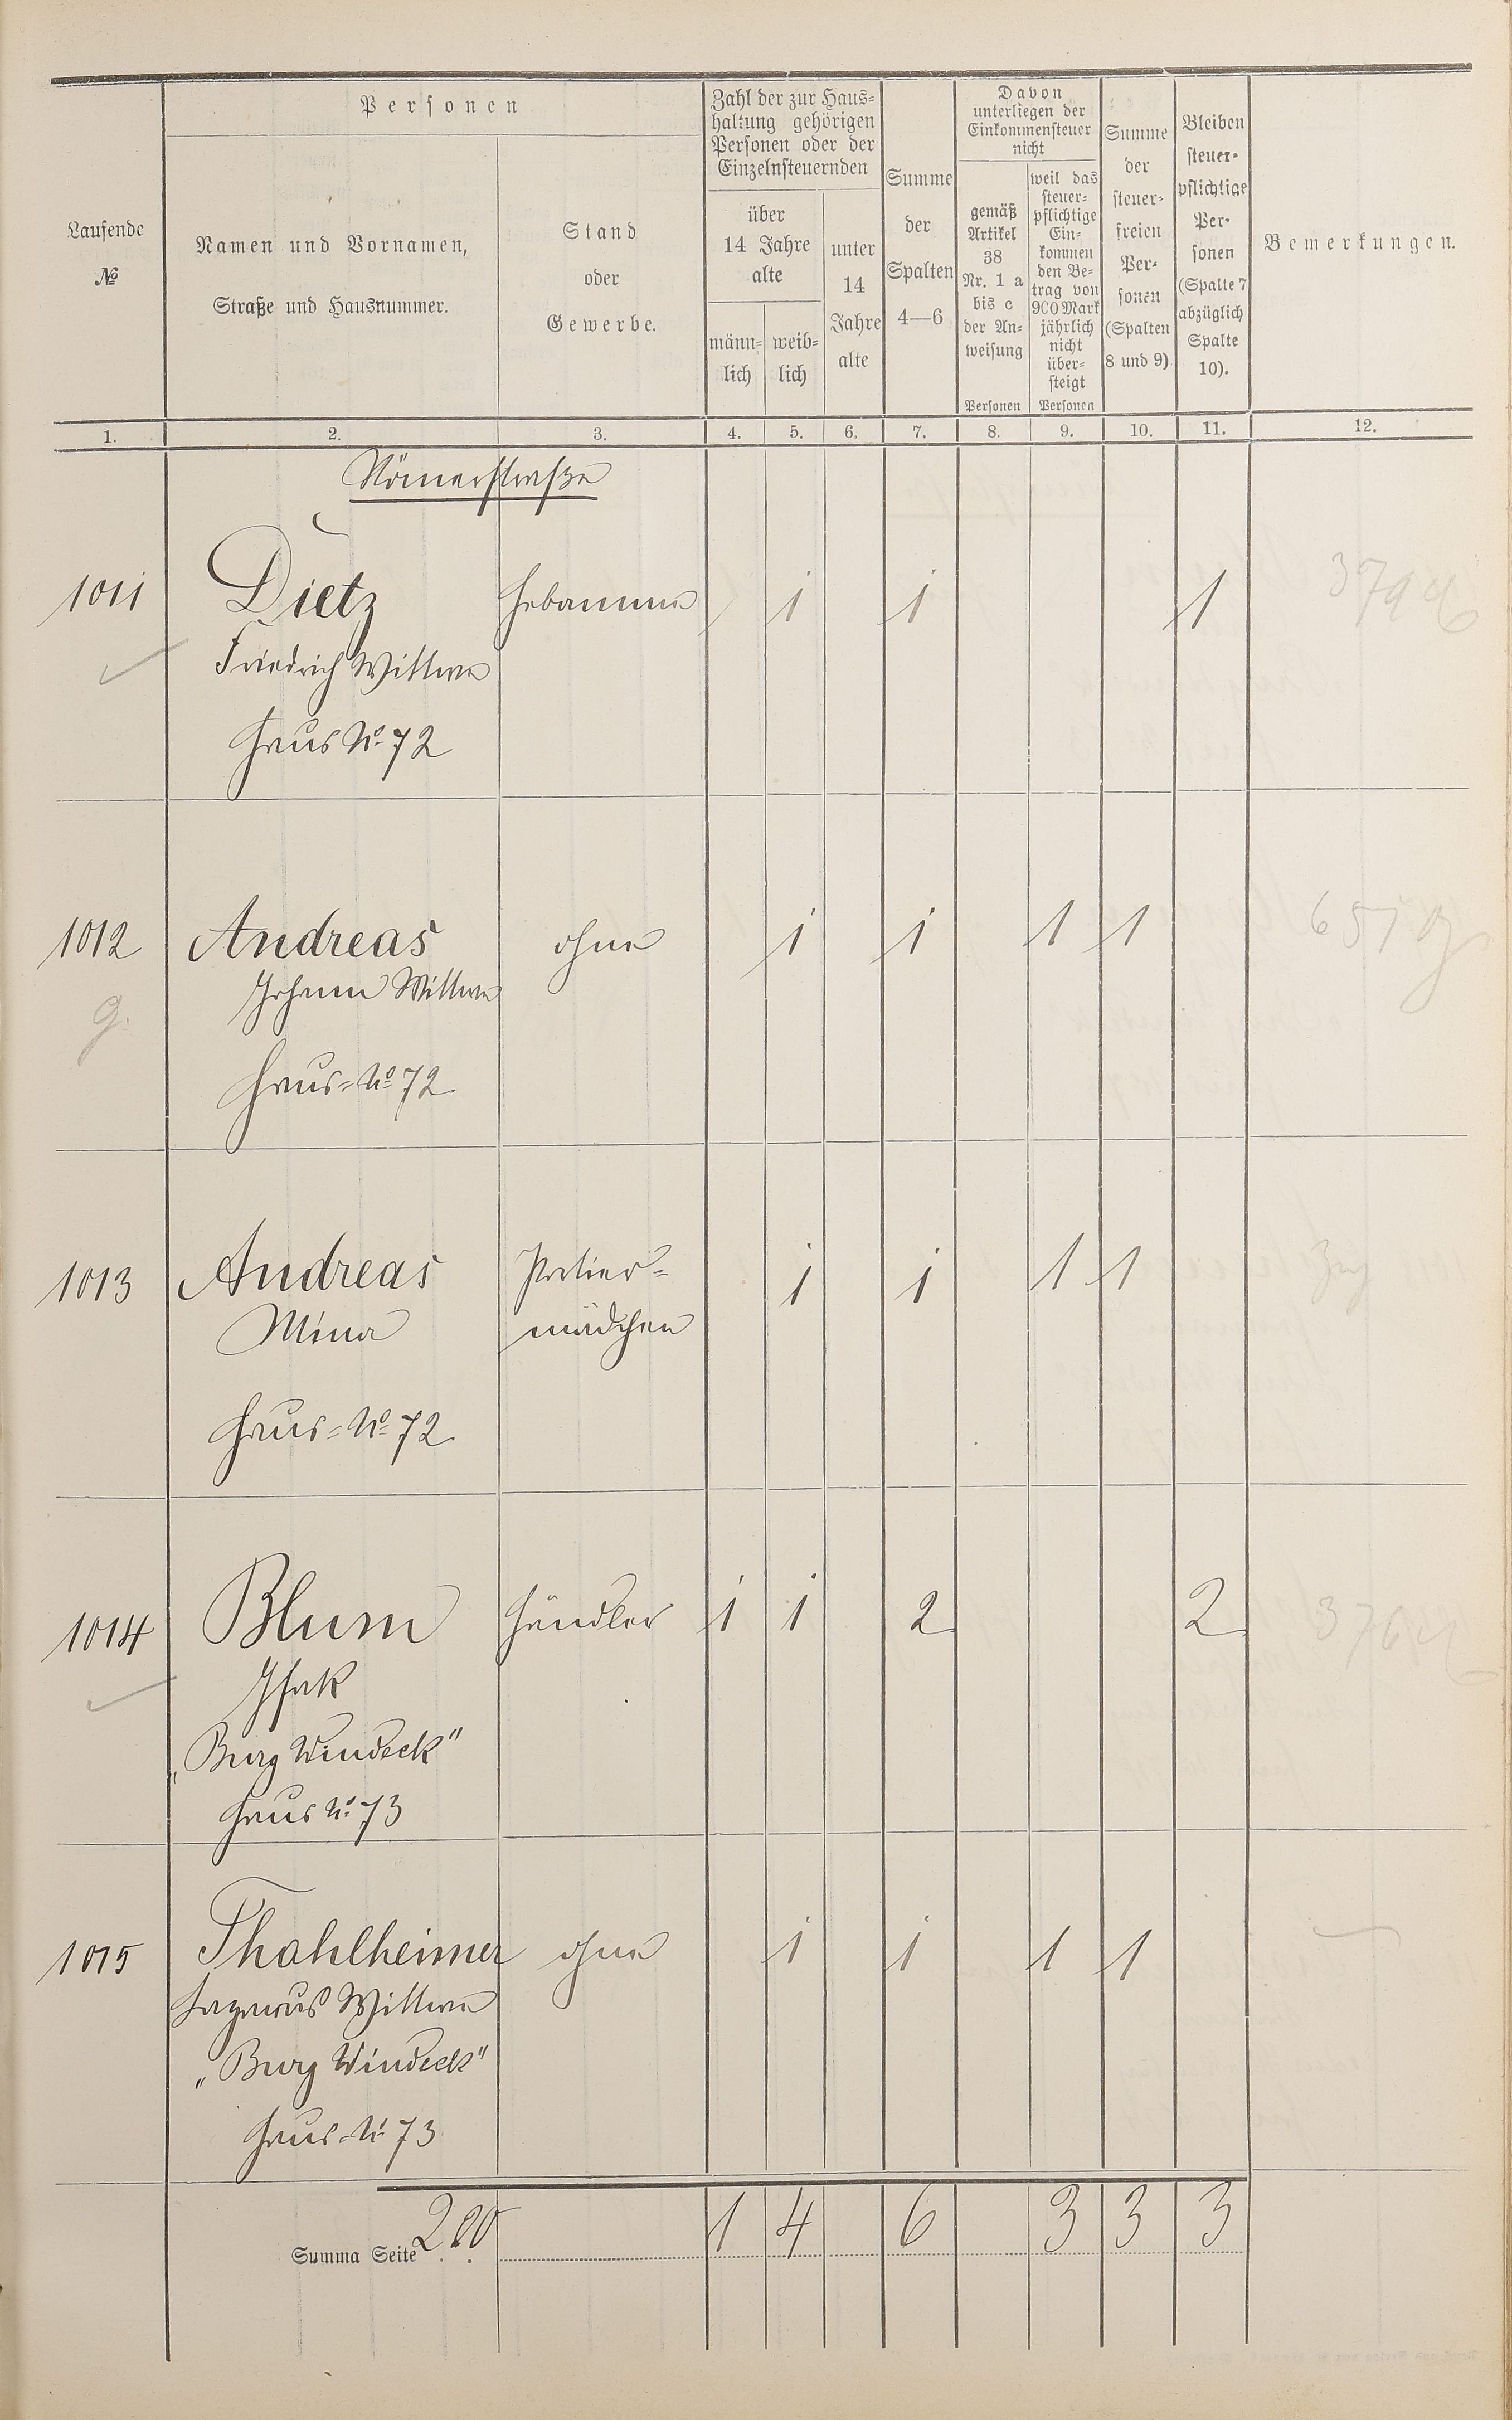 Laufende
№
Personen
Namen und Vornamen,
Straße und Hausnummer.
Stand
oder
Gewerbe.
Zahl der zur Haus-
haltung gehörigen
Personen oder der
Einzelnsteuernden
über
14 Jahre
alte
männ-
lich
weib-
lich
unter
14
Jahre
alte
Summe
der
Spalten
4—6
Davon
unterliegen der
Einkommensteuer
nicht
gemäß
Artikel
38
Nr. 1 a
bis c
der An-
weisung
Personen
weil das
steuer-
pflichtige
Ein-
kommen
den Be-
trag von
900 Mark
jährlich
nicht
über-
steigt
Personen
Summe
der
steuer-
freien
Per-
sonen
(Spalten
8 und 9)
Bleiben
steuer-
pflichtige
Per-
sonen
(Spalte 7
abzüglich
Spalte
10).
Bemerkungen.
1. 2. 3. 4. 5. 6. 7. 8. 9. 10. 11. 12.
Römerstraße
1011 Dietz Hebamme 1 1 1
Friedrich Wittwe
Haus No 72
1012 Andreas ohne 1 1 1 1
Johann Wittwe
g.
Haus-No 72
1013 Andreas Polier- 1 1 1 1
Mina mädchen
Haus-No 72
1014 Blum Händler 1 1 2 2
Isak
"Burg Windeck"
Haus No 73
1015 Thahlheimer ohne 1 1 1 1
Lazarus Wittwe
"Burg Windeck"
Haus-No 73
Summa Seite 200 1 4 6 3 3 3